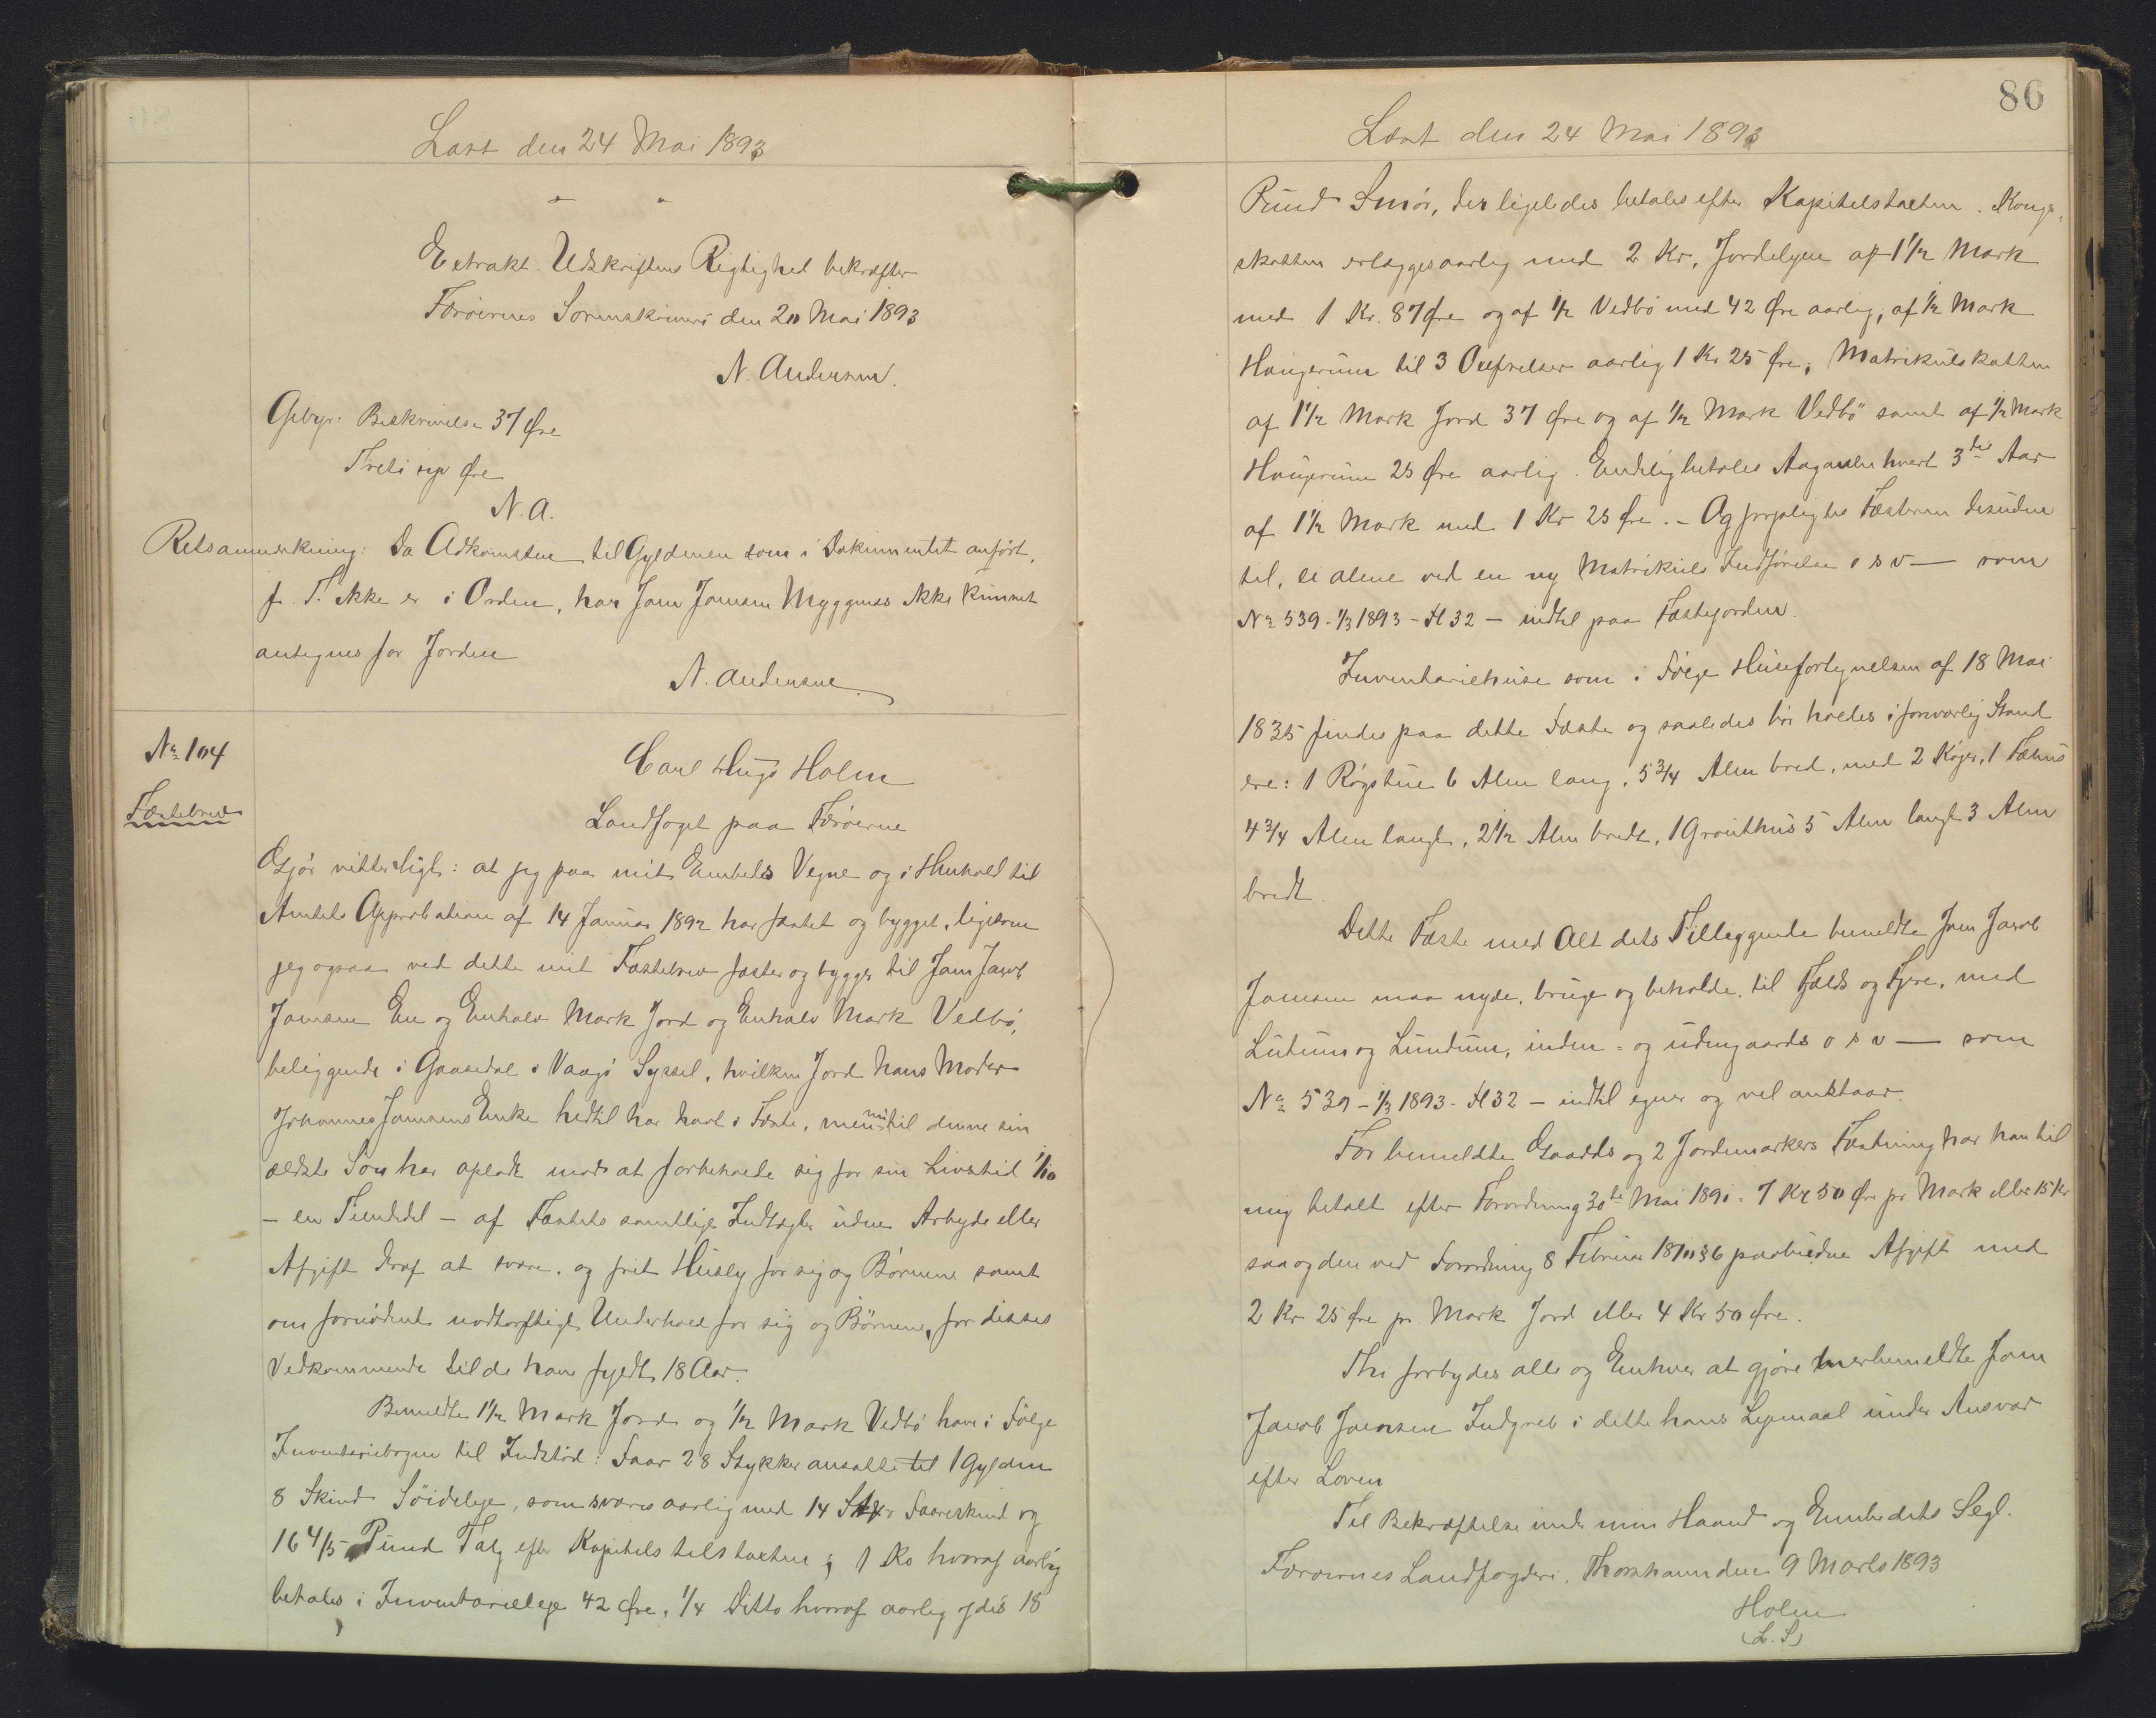 Læst den 24 Mai 1893
" "
Extrakt Udskriftens Rigtighed bekræfter
Færøernes Sorenskriveri den 20 Mai 1893
N. Andersen.
Gebyr: Beskrivelse 37 Øre
Treti syv Øre
N.A.
Retsanmærkning: Da Adkomsten til Gyldenen som i Dokumentet anført,
p. T. ikke er i Orden, har Joen Joensen Myggenæs ikke kunnet
antegnes for Jorden
N. Andersen
No 104
Fæstebrev
Carl Hugo Holm
Landfoged paa Færøerne
Gjør vitterligt: at jeg paa mit Embeds Vegne og i Henhold til
Amtets Approbation af 14 Januar 1892 har fæstet og bygget, ligesom
jeg ogsaa ved dette mit Fæstebrev fæster og bygger til Joen Jacob
Joensen En og Enhalv Mark Jord og Enhalv Mark Vedbø,
beliggende i Gaasedal i Vaagø Syssel, hvilken Jord hans Moder
Johannes Joensens Enke hedtil har havt i Fæste, men nu til denne sin
ældste Søn har opladt mod at forbeholde sig for sin Livstid 1/10
- en Tiendedel - af Fæstets samtlige Indtægter uden Arbyde eller
Afgift deraf at svare, og frit Husly for sig og Børnene samt
om fornødent nødtørftigt Underhold for sig og Børnene, for disses
Vedkommende til de have fyldt 18 Aar.
Bemeldte 1½ Mark Jord og ½ Mark Vedbø have i Følge
Inventariebogen til Indstød: Faar 28 Stykker ansatte til 1 Gylden
8 Skind Søideleje, som svares aarlig med 14 Stkr Faareskind og
16 4/5 Pund Talg efter Kapitelstaksten; 1 Ko hvoraf aarlig
betales i Inventarieleje 42 Øre, 1/4 Ditto hvoraf aarlig ydes 18
86
Læst den 24 Mai 1893
Pund Smør, der ligeledes betales efter Kapitelstaxten. Konge-
skatten erlægges aarlig med 2 Kr, Jordelejen af 1½ Mark
med 1 Kr. 87 Øre og af ½ Vedbø med 42 Øre aarlig, af ½ Mark
Haugerum til 3 aarlig 1 Kr 25 Øre, Matrikulskatten
af 1½ Mark Jord 37 Øre og af ½ Mark Vedbø samt af ½ Mark
Haugerum 25 Øre aarlig. Endelig betales hvert 3de Aar
af 1½ Mark med 1 Kr 25 Øre. - Og forpligtes Fæsteren desuden
til, ei alene ved en ny Matrikuls Indførelse o s v — som
No 539 - 1/3 1893 - H 32 — indtil paa Fæstejorden.
Inventariehuse som i Følge Husefortegnelsen af 18 Mai
1835 findes paa dette Fæste og saaledes bør holdes i forsvarlig Stand
ere: 1 Røgstue 6 Alen lang, 5¾ Alen bred, med 2 Køjer, 1 Fæhus
4¾ Alen langt, 2½ Alen bredt, 1 Grouthus 5 Alen langt 3 Alen
bredt.
Dette Fæste med Alt dets Tilleggende bemeldte Joen Jacob
Joensen maa nyde, bruge og beholde, til Fjelds og Fjære, med
Lutum og Lundum, inden- og udengaards o s v — som
No 539 - 1/3 1893 - H 32 — indtil egner og vel anstaar.
For bemeldte Gaards og 2 Jordemarkers Fæstning har han til
mig betalt efter Forordning 30te Mai 1891 = 7 Kr 50 Øre pr. Mark eller 15 Kr
saa og den ved Forordning 8 Februar 1810 §6 paabudne Afgift med
2 Kr 25 Øre pr Mark Jord eller 4 Kr 50 Øre.
Thi forbydes alle og Enhver at gjøre mer bemeldte Joen
Jacob Joensen Indgreb i dette hans Lejemaal under Ansvar
efter Loven
Til Bekræftelse under min Haand og Embedets Segl.
Færøernes Landfogderi, Thorshavn den 9 Marts 1893
Holm
(L. S)